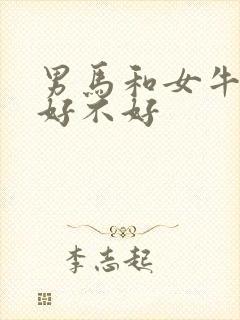 男馬和女牛
好不好
李志起